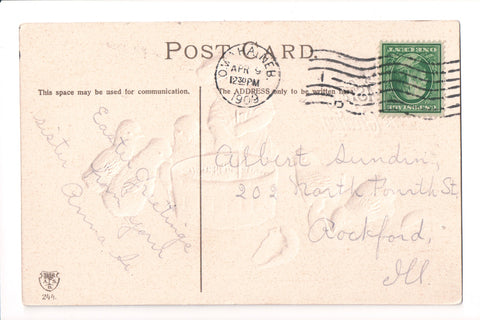 POST CARD
OMAHA, NEB.
APR 9
12 30 PM
1909
This space may be used for communication.
The ADDRESS only to be written here.
Easter Greetings
sister from your
Anna S.
Albert Sundin,
202 North Fourth St,
Rockford,
Ill.
ONE CENT
244.